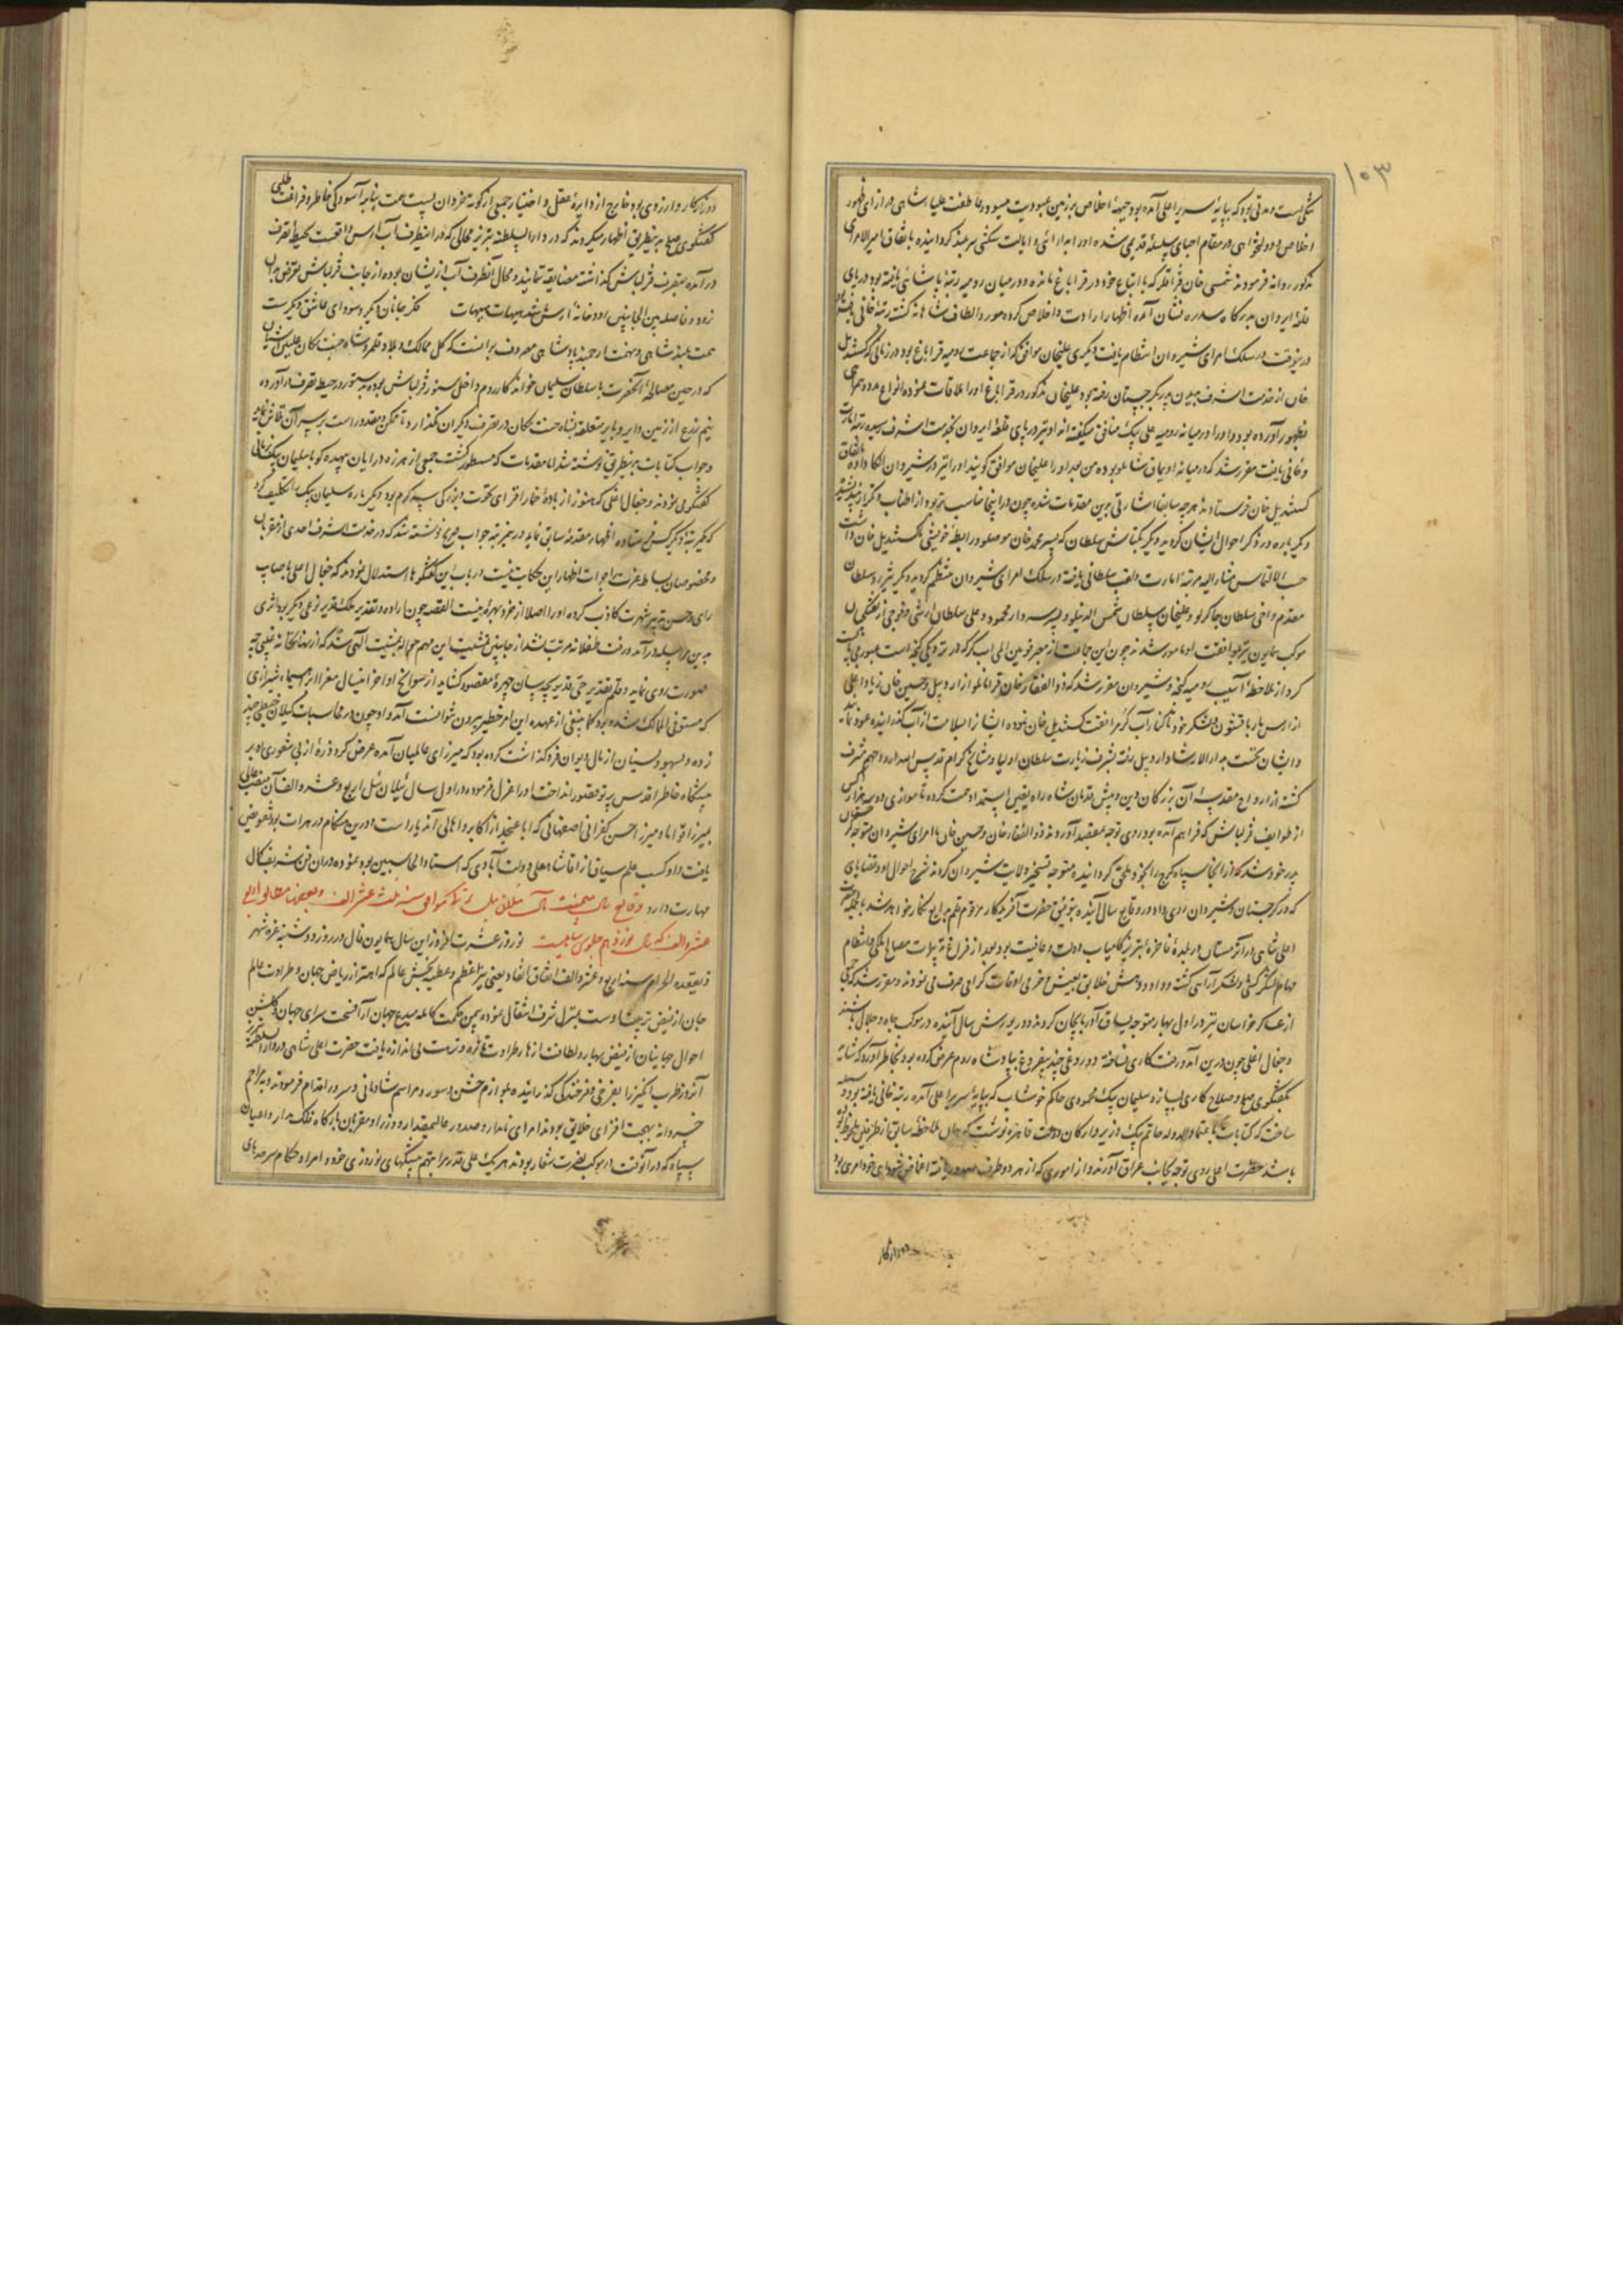 ۱۰۳
شکی است و مدتی بود که بپایه سریر اعلی آمده بود جبهه اخلاص بر زمین عبودیت میسود عاطفت علیای شاهی در ازای ظهور
اخلاص و دولتخواهی در مقام احیای سلسله قدیمی شده او را به ارائی و ایالت شکی سربلند گردانیده باتفاق امیرالامرای
مذکور روانه فرمودند شمسی خان قزاقلر که با اتباع خود در قراباغ مانده و در میان رومیه رتبه پاشائی یافته بود در پای
قلعه ایروان بدرگاه سدره نشان آمده اظهار ارادت و اخلاص کرده مورد الطاف شاهانه گشته رتبه خانی یافته بود
درینوقت در سلک امرای شیروان انتظام یافت دیگری علیخان موافق که از جماعت رومیه قراباغ بود در زمانی که کستندیل
خان از خدمت اشرف بدیدن پدر بگرجستان رفته بود علیخان مذکور در قراباغ او را ملاقات نموده انواع مدد و همراهی
بظهور آورده بود و او را در میانه رومیه علی بیک منافق میگفته اند او نیز در پای قلعه ایروان بخدمت اشرف رسیده رتبه امارت
و خانی یافت مقرر شد که در میانه اویماق شاملو بوده من بعد او را علیخان موافق گویند او را نیز در شیروان الکا داده باتفاق
کستندیل خان فرستادند هر چه سابقا اشارتی بدین مقدمات شده چون در اینجا مناسب تر بود از اطناب و تکرار نیندیشید
دیگر باره در ذکر احوال ایشان گردید و دیگر بکتاش سلطان که پسر محمد خان موصلو و رابطه خویشی بکستندیل خان داشت
حسب الالتماس مشارالیه مرتبه امارت و لقب سلطانی یافته در سلک امرای شیروان منتظم گردید و دیگر شیرزاد سلطان
مقدم و اخی سلطان چاکرلو و علیخان سلطان شمس الدینلو و پسر سردار محمود و علی سلطان ارشی و فوجی از تفنگچیان
موکب همایون نیز بمرافقت او مامور شدند چون این جماعت از معبر قوین المی آب کر که در نزدیکی گنجه است عبور می بایست
کرد از ملاحظه آسیب رومیه گنجه و شیروان مقرر شد که ذوالفقار خان قرامانلو از اردبیل و حسین خان زیاد اغلی
از ارسبار با قشون و لشکر خود تا کنار آب کر مرافقت کستندیل خان نموده ایشان را بسلامت از آب گذرانیده عود نماید
و ایشان نخست بدارالارشاد اردبیل رفته بشرف زیارت سلطان اولیا و مشایخ کرام قدس الله ارواحهم مشرف
گشته از ارواح مقدسه آن بزرگان دین و پیش قدمان شاه راه یقین استمداد همت کرده تا موازی دو سه هزار کس
از طوایف قزلباش که فراهم آمده بود روی توجه بمقصد آوردند ذوالفقار خان و حسین خان با امرای شیروان متوجه گرجستان
پدر خود شد که از آنجا سپاه گرج را بخود ملحق گردانیده متوجه تسخیر ولایت شیروان گردند شرح احوال او و قضایای
که در گرجستان و شیروان روی داد در وقایع سال آینده بتوفیق حضرت آفریدگار مرقوم قلم بدایع نگار خواهد شد بالجمله حضرت
اعلی شاهی در آن زمستان در بلده فاخره تبریز کامیاب دولت و عافیت بود بعد از فراغ ترتیبات مصالح ملکی و انتظام
مهام لشکرکشی و لشکرآرائی گشته و داد و دهش خلایق بعیش و خرمی اوقات گرامی صرف می نمودند و مقرر شد که جمعی
از عساکر خراسان نیز در اول بهار متوجه یساق آذربایجان گردند و در یورش سال آینده در موکب جاه و جلال باشند
و جغال اغلی چون درین آمد و رفت کاری نساخته و دروغی چند بیفروغ بپادشاه روم عرض کرده بود بخاطر آورد که شاید
بگفتگوی صلح و صلاح کاری بسازد سلیمان بیک محمودی حاکم خوشاب که بپایه سریر اعلی آمده رتبه خانی یافته بود وسیله
ساخت که کتابات باعتمادالدوله حاتم بیک وزیر و ارکان دولت قاهره نوشت که بهمان ملاحظه سابق از طرفین ملحوظ بوده
باشد حضرت اعلی روی توجه بجانب عراق آورند و از اموری که از هر دو طرف صدور یافته اغماض نمایند خود امری بود
دورازکار
دورازکار و آرزوی بود خارج از دایره عقل و اختیار جمعی از کوته خردان پست همت بنابر آسودگی خاطر و فراغت طلبی
گفتگوی صلح بدینطریق اظهار میکردند که در دارالسلطنه تبریز محالی که در اینطرف آب ارس واقعست بحیطه تصرف
درآمده بتصرف قزلباش گذاشته مضایقه ننمایند و محال آنطرف آب از یشان بوده از جانب قزلباش تعرض بدان
نرود و فاصله بین الجانبین رودخانه ارس باشد هیهات هیهات فکر جانان دیگر و سودای عاشق دیگرست
همت بلند شاهی و نهمت ارجمند پادشاهی مصروف برانست که کل ممالک و بلاد قلمرو شاه جنت مکان علیین آشیان
که در حین مصالحه آنحضرت با سلطان سلیمان خواندگار روم داخل سنور قزلباش بوده بدستور در حیطه تصرف درآورده
نیم ذرع از زمین دایر و بایر متعلقه شاه جنت مکان در تصرف دیگران نگذارد و تا ممکن و مقدور است بر سر آن تلاش نماید
و جواب کتابات بدینطریق نوشته شد اما مقدمات که مسطور گشت جمعی از هرزه درایان بیهده گو با سلیمان بیک زبانی
گفتگوی نمودند و جغال اغلی که هنوز از باده خمار افزای نخوت و بزرگی سر گرم بود دیگر باره سلیمان بیک را تکلیف کرد
که یک مرتبه دیگر کس فرستاده اظهار مقدمه سابق نماید درین مرتبه جواب صریح نوشته شد که در خدمت اشرف احدی از مقربان
و مخصوصان بساط عزت را جرات اظهار این حکایت نیست و در باب این گفتگوها استدلال نمودند که جغال اغلی باصابت
رای و حسن تدبیر شهرت کاذب کرده او را اصلا از خرد بهره نیست القصه چون اراده و تقدیر ملک قدیر نوعی دیگر بود اثری
بدین مراسله و آمد و رفت طفلانه مرتب نشد از جانبین مشیت این مهم حواله بمشیت الهی شد که از نهانخانه غیب چه
صورت روی نماید و قلم تقدیر حی قدیر بچه سان چهره مقصود گشاید از سوانح اواخر اینسال میرزا ابراهیم شیرازی
که مستوفی الممالک شده بود کما ینبغی از عهده این امر خطیر بیرون نتوانست آمد و چون در محاسبات گیلان خبطی چند
زده و بسهو و نسیان از مال دیوان فروگذاشت کرده بود که میرزای عالمیان آمده عرض کرد ذره از بی شعوری او بر
پیشگاه خاطر اقدس پرتو ظهور انداخت او را عزل فرموده در اول سال ییلان ئیل اربع و عشر و الف آن منصب عالی
بمیرزا قوام الدین میرزا حسن کفرانی اصفهانی که ابا عن جد از اکابر و اهالی آن دیار است و درین هنگام در هرات بود تفویض
یافت و او کسب علم سیاق از آقا شاه علی دولت آبادی که استاد المحاسبین بود نموده در آن فن شریف کمال
مهارت دارد وقایع سال خجسته مآل ییلان ئیل ترکی موافق سنه ثلث عشر الف و بعضها مطابق اربع
عشر و الف که سال نوزدهم جلوس شاهیست نوروز عشرت افروز این سال همایون فال در روز دوشنبه غره شهر
ذیقعده الحرام سنه اربع و عشر و الف اتفاق افتاد یعنی نیر اعظم و عطیه بخش عالم که اهتزاز ریاض جهان و طراوت عالم
جان از فیض تربیت اوست بمنزل شرف انتقال نموده بیمن حکمت کامله مبدع جهان آرا فسحت سرای جهان و گلشن
احوال جهانیان از فیض بهار و لطافت ازهار طراوت تازه و نزهت بی اندازه یافت حضرت اعلی شاهی در دارالسلطنه تبریز
آنروز طرب انگیز را بفرخی و فرخندگی گذرانیده بلوازم جشن و سور و مراسم شادمانی و سرور اقدام فرمودند و بمراحم
خسروانه بهجت افزای خلایق بودند امرای نامدار و صدور عالیمقدار و وزرا و مقربان بارگاه فلک مدار و اعیان
سپاه که در آنوقت در موکب نصرت شعار بودند هر یک علی قدر مراتبهم پیشکشهای نوروزی خود و امرا و حکام سرحدهای